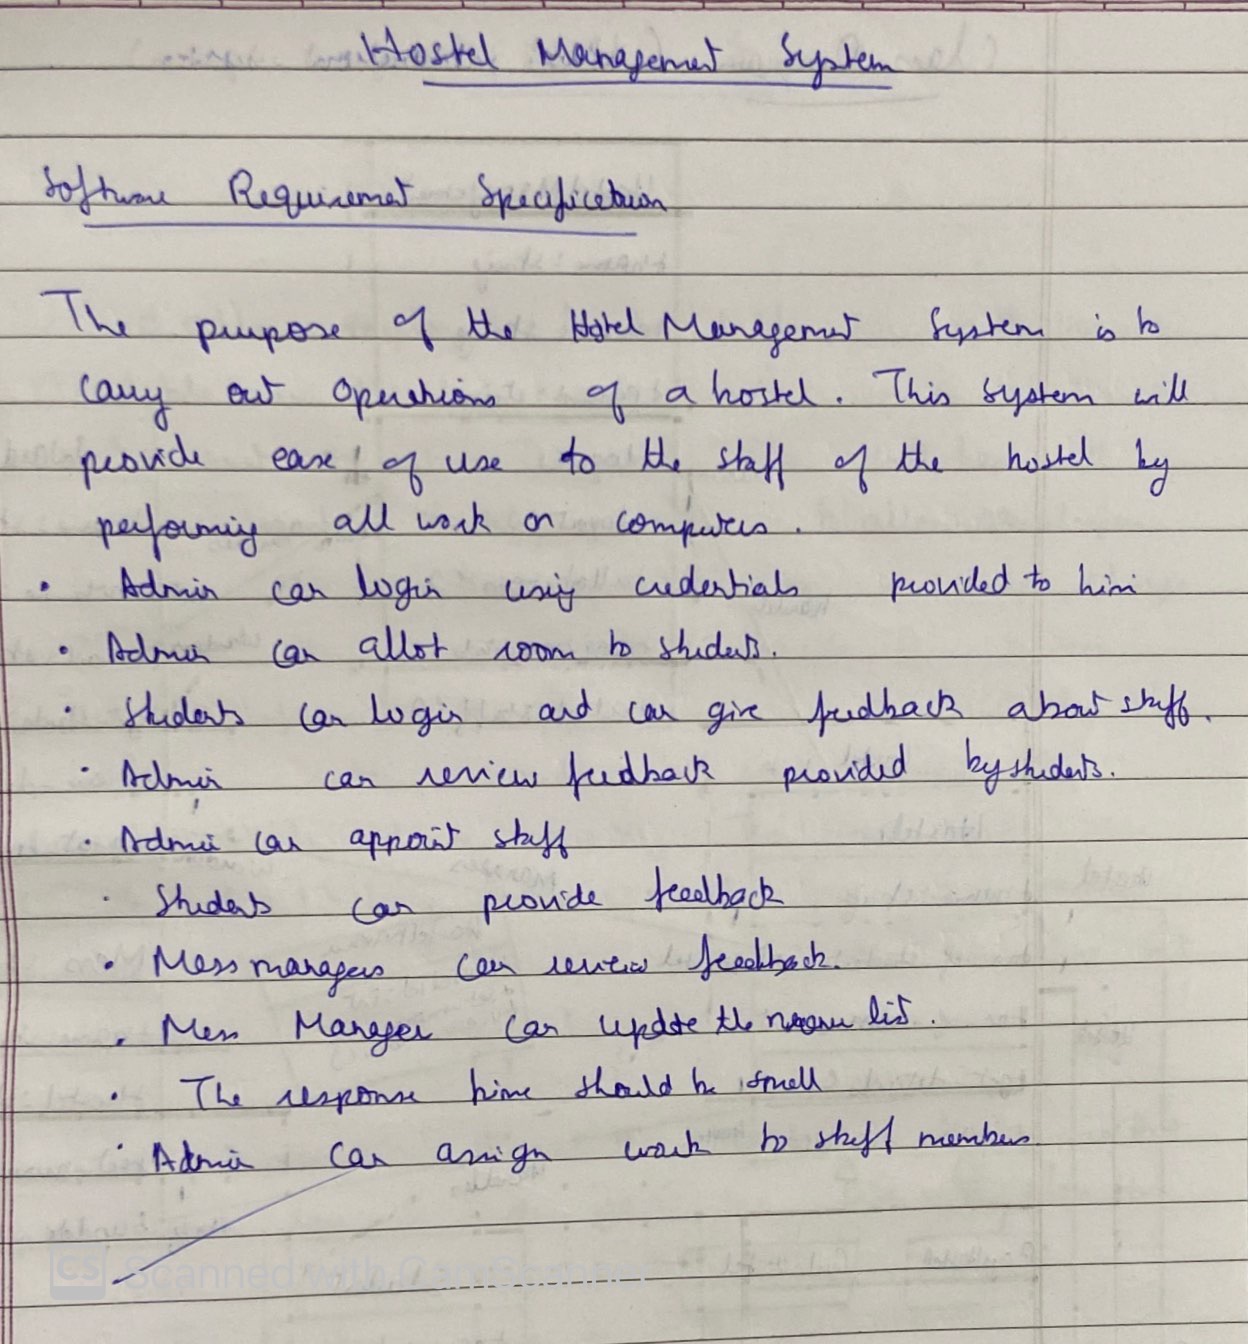 Hostel Management System
Software Requirement Specification
The purpose of the Hotel Management System is to
carry out operations of a hostel. This system will
provide ease of use to the staff of the hostel by
performing all work on computers.
• Admin can login using credentials provided to him
• Admin can allot room to students.
• Students can login and can give feedback about staff.
• Admin can review feedback provided by students.
• Admin can appoint staff
• Students can provide feedback
• Mess managers can review feedback.
• Mess Manager can update the list.
• The response time should be small
• Admin can assign work to staff members
CS Scanned with CamScanner